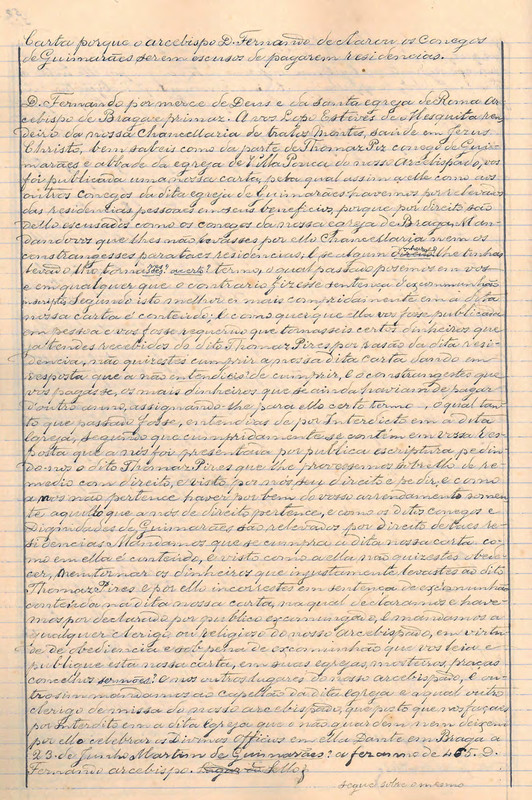 52.
Carta porque o arcebispo D. Fernando de os Conegos
de Guimarães serem escusos de pagarem residencias.
D. Fernando por merce de Deus e da santa egreja de Roma Ar-
cebispo de Braga e primaz. A vos Lopo Estêves de Mesquita ren-
deiro da nossa Chancellaria de tralos montes, saúde em Jezus
Christo, bem sabeis como da parte de Thomaz Piz conego de Guim-
marães e abbade da egreja de Villa Pouca do nosso Arcebispado, vos
foi publicada uma nossa carta, pela qual assim a elle como aos
outros conegos da dita egreja de Guimarães havemos por relevados
das residencias pessoaes em seus beneficios, porque por direito são
dello escusados como os conegos da nossa egreja de Braga, Man-
dandovos que lhes não levasses por ello Chancellaria nem os
constrangesses para taes residencias, e se algum lhe tinhas
levado lho tornasses a certo termo, o qual passado posemos em vos
e em qualquer que o contrario fizesse sentença d'excommunhão
segundo isto melhor e mais compridamente em a dita
nossa carta é contendo, e como quer que ella vos fosse publicada
em pessoa e vos fosse requerido que tornasseis certos dinheiros que
ja tendes recebidos do dito Thomaz Pires por rasão da dita resi-
dencia, não quizestes cumprir a nossa dita carta dando em
resposta que a não entendieis de cumprir, e o constrangestes que
vos pagasse, os mais dinheiros que se ainda haviam de pagar
d'outro anno, assignando-lhe para ello certo termo, o qual tan-
to que passado fosse, entendias de por Interdicto em a dita
Egreja, segundo que cumpridamente se contem em vossa res-
posta que a nós foi presentada por publica escriptura pedin-
do-nos o dito Thomaz Pires que lhe provessemos sobre ello de re-
medio com direito, e visto por nós seu direito e pedir, e como
a nós não pertence haver por bem do vosso arrendamento somen-
te aquillo que a nós de direito pertence, e como os ditos conegos e
Dignidades de Guimarães são relevados por direito de taes re-
sidencias Mandamos que se cumpra a dita nossa carta co-
mo em ella é contendo, e visto como a ella não quizestes obede-
cer, nem tornar os dinheiros que injustamente levastes ao dito
Thomaz Pires e por ello incorrestes em sentença de excommunhão
contendo na dita nossa carta, na qual declaramos e have-
mos por declarado por publico excommungado, e mandamos a
qualquer clerigo ou religioso do nosso arcebispado, em virtu-
de de obediencia e sob pena de excommunhão que vos leia e
publique esta nossa carta, em suas egrejas, mosteiros, praças
concelhos sermões e nos outros lugares do nosso arcebispado, e ou-
trosim mandamos ao capellão da dita Egreja e a qual outro
clerigo de missa do nosso arcebispado, que posto que vos façaes
por Interdito em a dita Egreja que o não guardem, nem deixem
por ello celebrar os Divinos Officios em ella Dante em Braga a
23 de Junho Martim de Guimarães a fez anno de 465. D.
Fernando arcebispo. Lugar do Sello
segue sobre o mesmo